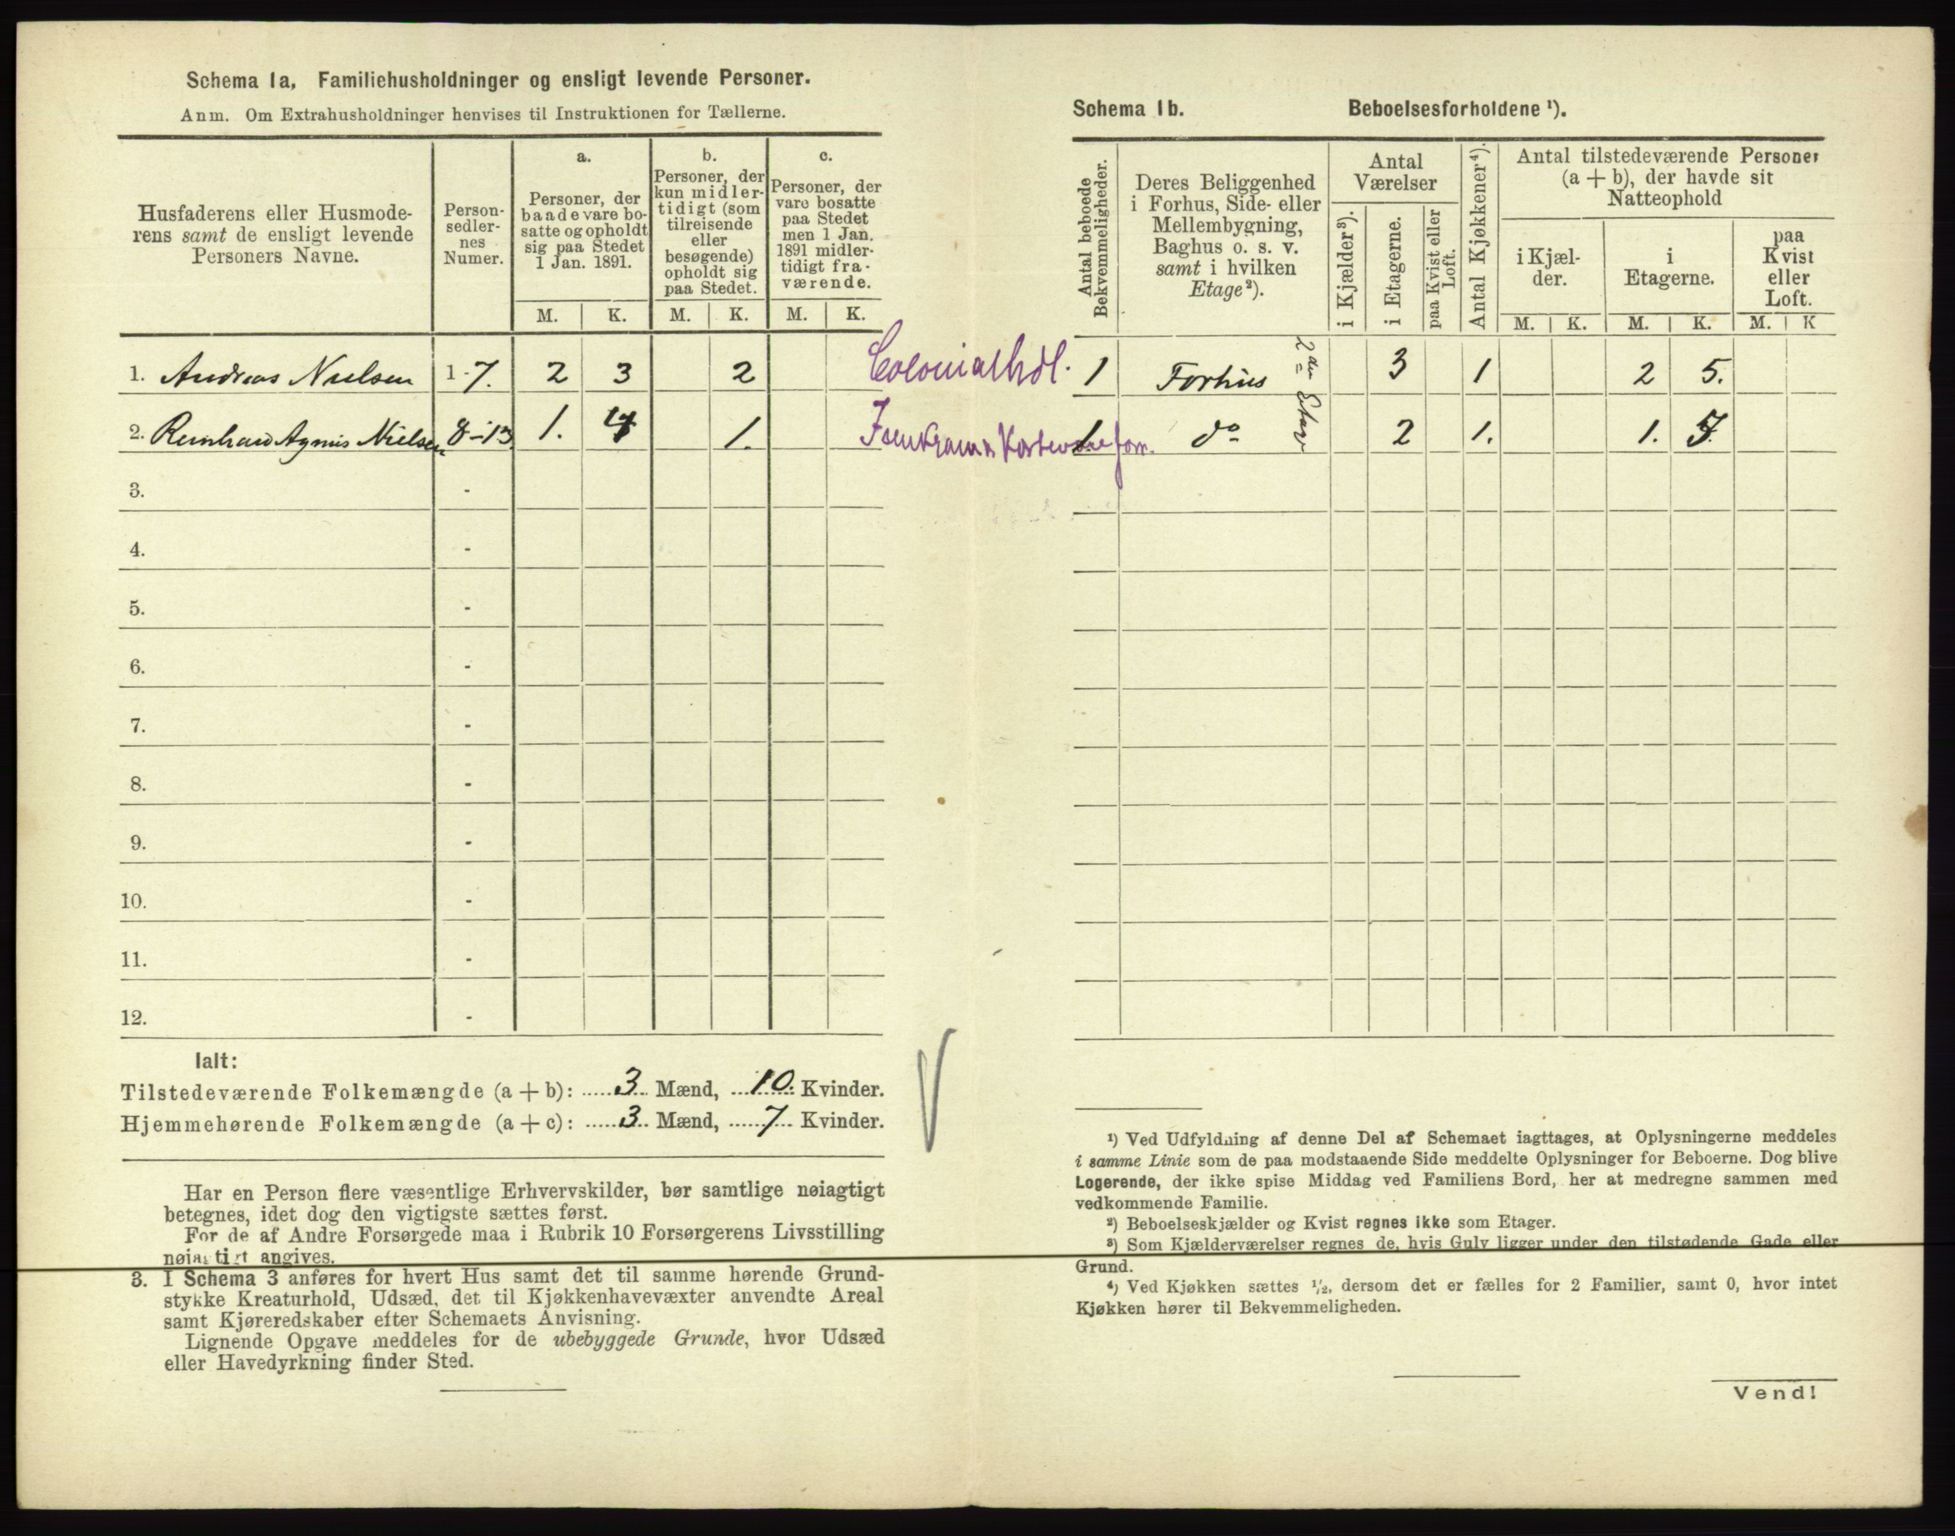 Schema 1a, Familiehusholdninger og ensligt levende Personer.
Anm. Om Extrahusholdninger henvises til Instruktionen for Tællerne.
Husfaderens eller Husmode-
rens samt de ensligt levende
Personers Navne.
Person-
sedler-
nes
Numer.
a.
Personer, der
baade vare bo-
satte og opholdt
sig paa Stedet
1 Jan. 1891.
b.
Personer, der
kun midler-
tidigt (som
tilreisende
eller
besøgende)
opholdt sig
paa Stedet.
c.
Personer, der
vare bosatte
paa Stedet
men 1 Jan.
1891 midler-
tidigt fra-
værende.
M. K. M. K. M. K.
1. Andreas Nielsen 1-7. 2 3 2
2. Agnus Nielsen 8-13 1. 4 1.
3. -
4. -
5. -
6. -
7. -
8. -
9. -
10. -
11. -
12. -
Ialt:
Tilstedeværende Folkemængde (a + b): 3 Mænd, 10. Kvinder.
Hjemmehørende Folkemængde (a + c): 3 Mænd, 7 Kvinder.
Har en Person flere væsentlige Erhvervskilder, bør samtlige nøiagtigt
betegnes, idet dog den vigtigste sættes først.
For de af Andre Forsørgede maa i Rubrik 10 Forsørgerens Livsstilling
nøiagtigt angives.
3. I Schema 3 anføres for hvert Hus samt det til samme hørende Grund-
stykke Kreaturhold, Udsæd, det til Kjøkkenhavevæxter anvendte Areal
samt Kjøreredskaber efter Schemaets Anvisning.
Lignende Opgave meddeles for de ubebyggede Grunde, hvor Udsæd
eller Havedyrkning finder Sted.
Schema 1b. Beboelsesforholdene ¹).
Antal beboede
Bekvemmeligheder.
Deres Beliggenhed
i Forhus, Side- eller
Mellembygning,
Baghus o. s. v.
samt i hvilken
Etage²).
Antal
Værelser
i Kjælder³).
i Etagerne.
paa Kvist eller
Loft.
Antal Kjøkkener⁴).
Antal tilstedeværende Personer
(a + b), der havde sit
Natteophold
i Kjæl-
der.
i
Etagerne.
paa
Kvist
eller
Loft.
M. K. M. K. M. K
Colonialhdl. 1 Forhus 2den Etage 3 1 2 5.
1. do 2 1. 1. 5.
¹) Ved Udfyldning af denne Del af Schemaet iagttages, at Oplysningerne meddeles
i samme Linie som de paa modstaaende Side meddelte Oplysninger for Beboerne. Dog blive
Logerende, der ikke spise Middag ved Familiens Bord, her at medregne sammen med
vedkommende Familie.
²) Beboelseskjælder og Kvist regnes ikke som Etager.
³) Som Kjælderværelser regnes de, hvis Gulv ligger under den tilstødende Gade eller
Grund.
⁴) Ved Kjøkken sættes ¹/₂, dersom det er fælles for 2 Familier, samt 0, hvor intet
Kjøkken hører til Bekvemmeligheden.
Vend!